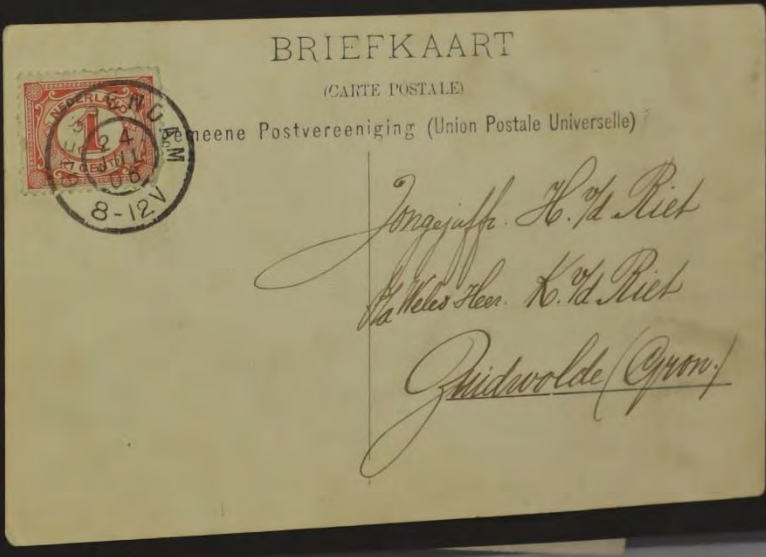 BRIEFKAART
(CARTE POSTALE)
meene Postvereeniging (Union Postale Universelle)
NEDERLAND
1
CENT
24
JUL
06
8-12V
Jongejuffr. H. v/d Riet
p/a Weled Heer. K. v/d Riet
Zuidwolde (Gron.)